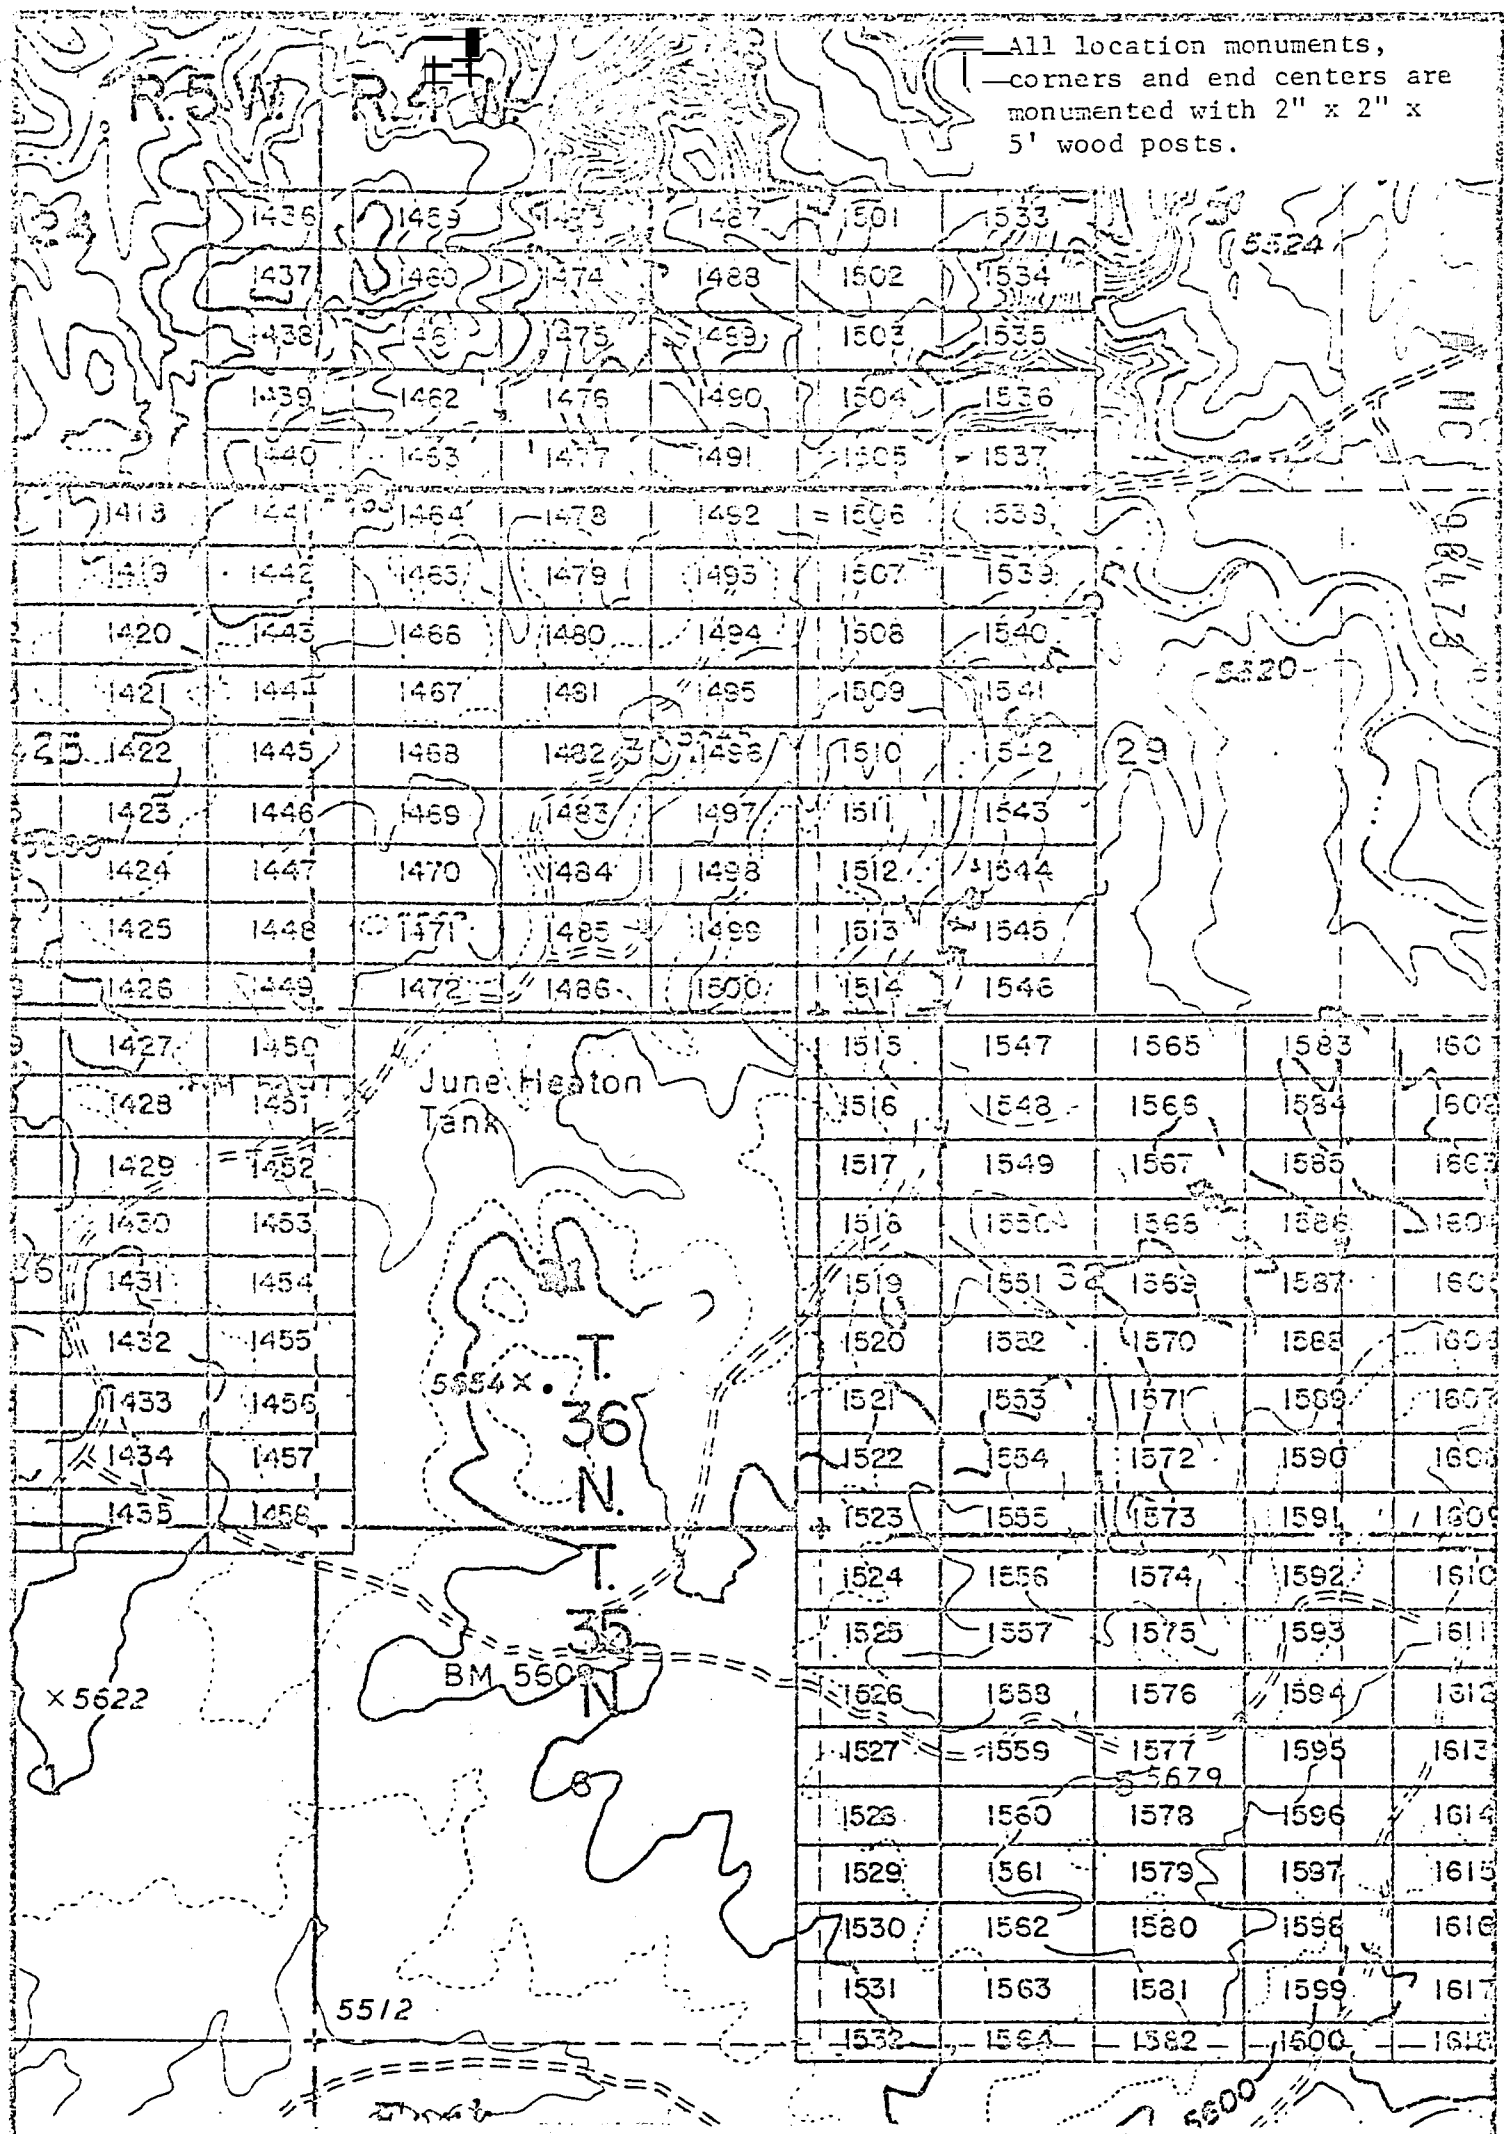 All location monuments,
corners and end centers are
monumented with 2" x 2" x
5' wood posts.
R.5W. R.4W.
1436 1459 1473 1487 1501 1533
5524
1437 1460 1474 1488 1502 1534
1438 1475 1489 1503 1535
1439 1462 1476 1490 1504 1536
MC
1440 1463 1477 1491 1505 1537
1418 1441 1464 1478 1492 1506 1538
1419 1442 1479 1493 1507 1539
1420 1443 1466 1480 1494 1508 1540
1421 1444 1467 1481 1495 1509 1541
5520
25 1422 1445 1468 1482 30 1496 1510 1542 29
1423 1446 1469 1483 1497 1511 1543
1424 1447 1470 1484 1498 1512 1544
1425 1448 1471 1485 1499 1513 1545
1426 1449 1472 1486 1500 1514 1546
1427 1450 1515 1547 1565 1583
June Heaton
Tank
1428 1451 1516 1548 1566 1584 1602
1429 1452 1517 1549 1567 1585 1603
1430 1453 1518 1550 1568 1586
36 1431 1454 31 1519 1551 32 1569 1587
1432 1455 1520 1552 1570 1588
5654 T.
1433 1456 1521 1553 1571 1589
36
1434 1457 1522 1554 1572 1590
N.
1435 1458 1523 1555 1573 1591 1609
T.
1524 1556 1574 1592 1610
35
1525 1557 1575 1593 1611
BM N
5622 1526 1558 1576 1594 1612
1527 1559 1577 1595 1613
5 5679
6
1528 1560 1578 1596 1614
1529 1561 1579 1597 1615
1530 1562 1580 1598 1616
1531 1563 1581 1599 1617
5512
1532 1564 1582 1600 1618
5600